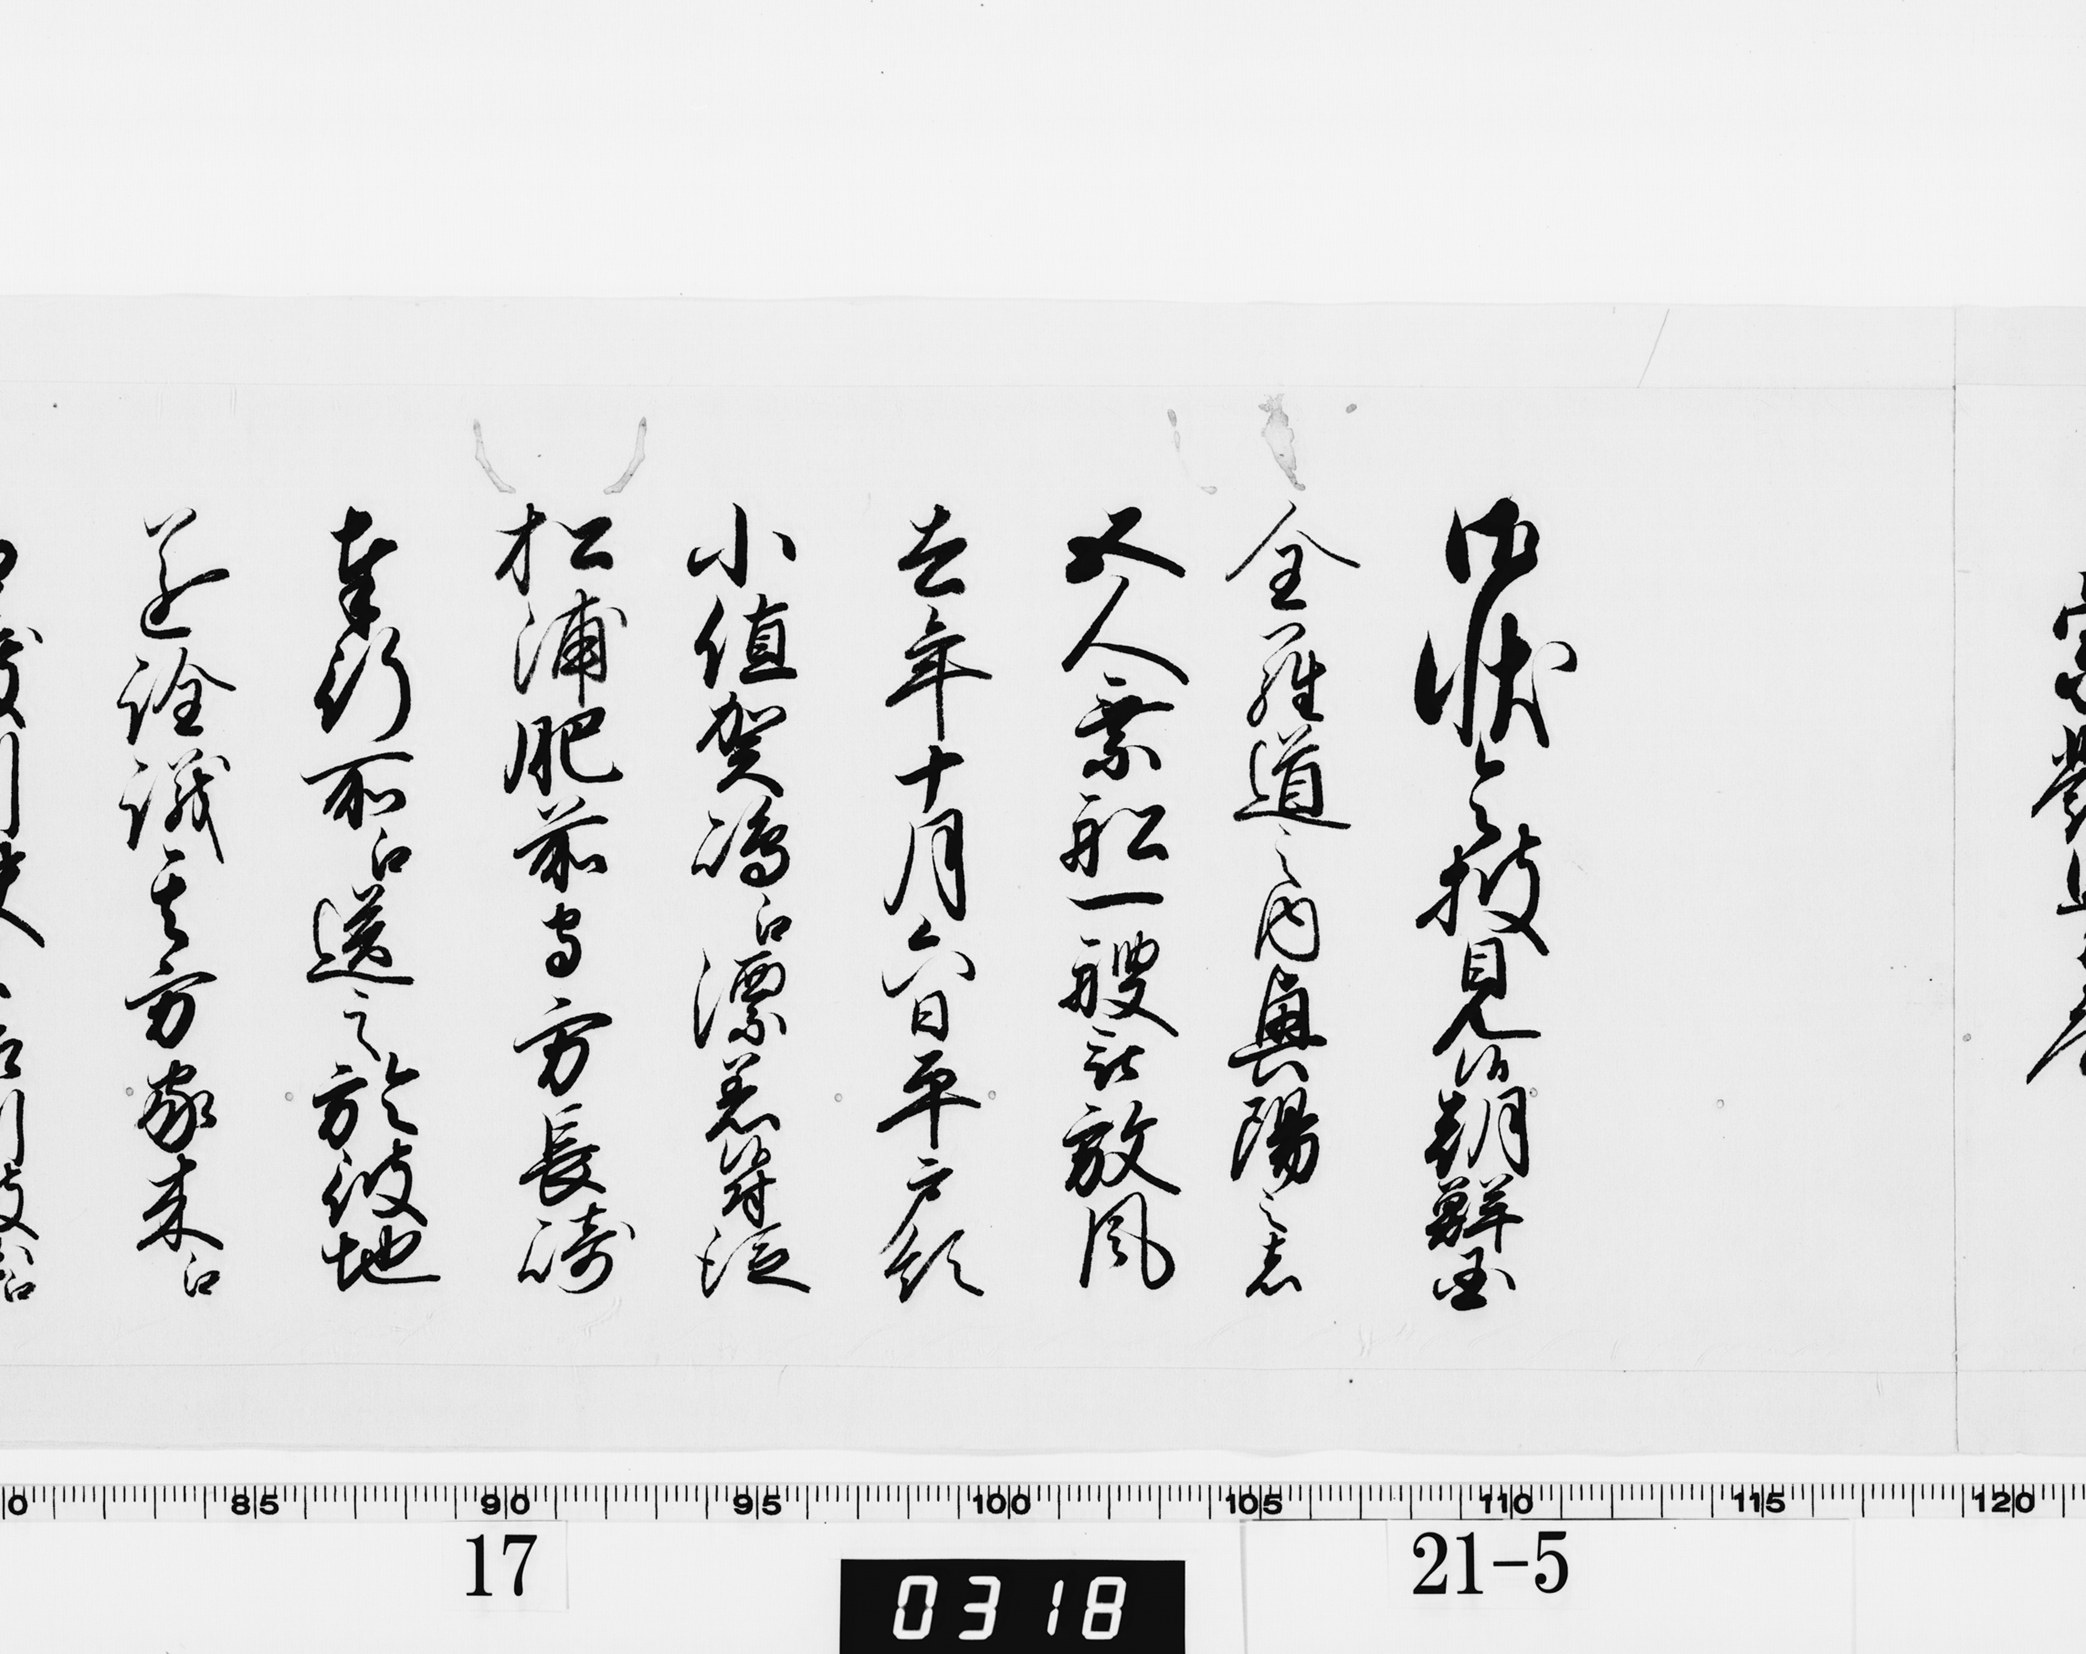 御状令披見候朝鮮国
全羅道之内興陽之者
五人乗船一艘被放風
去年十月六日平戸領
小値賀嶋江漂着候付従
松浦肥前守方長崎
奉行所江送之於彼地
遂詮議其方家来江
0 85 90 95 100 105 110 115 120
17
0318
21-5